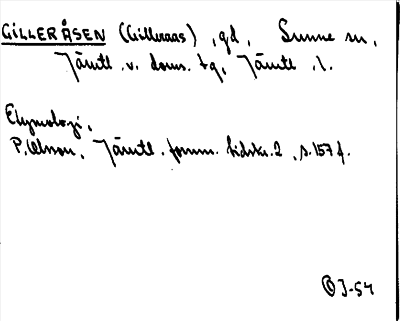 GILLERÅSEN (Gilleraas), gd, Sunne sn,
Jämtl. v. doms. tg, Jämtl. l.
Etymologi,
P. Olsson, Jämtl. fornm. tidskr. 2, s. 157 f.
J-54